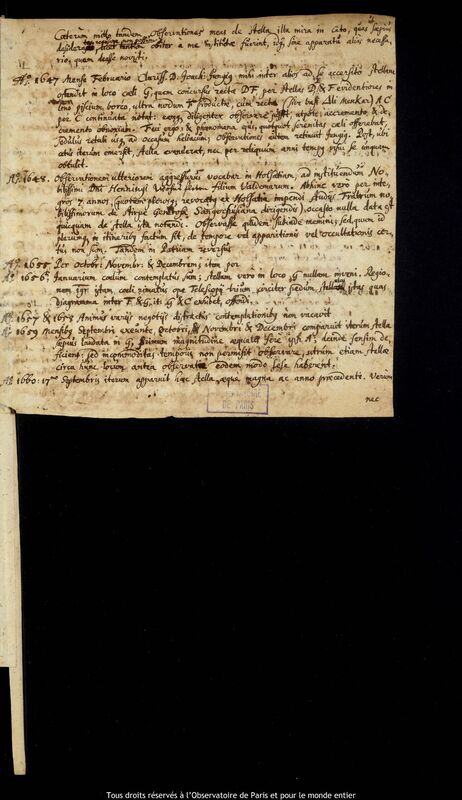 Cæterum mitto tandem Observationes meas de Stella illa mira in Ceto, quas sæpius
desiderasti, licet tantum obiter a me institutæ fuerint, idq; sine apparatu aliis necessa-
rio, quem deesse novisti.
Aº. 1647 Mense Februario Clariss. D. Joach. Jungig. mihi inter alios ad se accersito Stellam
ostendit in loco cæli G, quem concursus recta DF per Stellas D & F evidentiores in
lino piscium boreo, ultra nodum productæ, cum recta (sive basi Ali Menkar) A C
per C continuata notat: eamq; diligenter observare jussit, utpote accremento & de-
cremento obnoxiam. Feci ergo: & phænomena quæ, quotquot serenitas cæli offerebat,
sedulus retuli usq; ad occasum heliacum. Observationes autem retinuit Jungig. Post, ubi
cœli iterum emersit, Stella evanuerat, nec per reliquum anni tempus ipsi se unquam
obtulit.
Aº. 1648. Observationem ulteriorem aggressurus vocabar in Holsatiam, ad instituendum No-
bilissimi Dni Henningi filium Valdemarum. Athinc vero per inte-
gros 7 annos, (quorum plerosq; revocatus ex Holsatia impendi studiis Fratrum no-
bilissimorum de Stirpe Generosa dirigendis) occasio nulla data est
quicquam de Stella ista notandi. Observasse quidem subinde memini; sed, quum id
plerumq; in itineribus factum sit, de tempore vel apparitionis vel occultationis cer-
tus non sum. Tandem in Patriam reversus
Aº. 1655 Per Octobr: Novembr: & Decembrem; item per
Aº 1656 Januarium cœlum contemplatus sum; stellam vero in loco G nullam inveni. Regio-
nem igr istam cæli scrutatus ope Telescopii trium circiter pedum, stellas istas quas
Diagramma inter F & G, iti G & C exhibet, offendi.
Aº. 1657 & 1658 Animus variis negotiis distractus contemplationibus non vacavit
Aº 1659 Mensibq Septembri exeunte, Octobri, Novembri & Decembri comparuit iterum Stella
sæpius laudata in G, primum magnitudine æqualis fere ipsi A; deinde sensim de-
ficiens: sed incommoditas temporis non permisit observare, utrum etiam stellæ
circa hunc locum antea observatæ eodem modo sese haberent.
Aº 1660. 17º Septembris iterum apparuit hæc Stella, æque magna ac anno præcedente. Verum
nec
OBSERVATOIRE
DE PARIS
Tous droits réservés à l'Observatoire de Paris et pour le monde entier